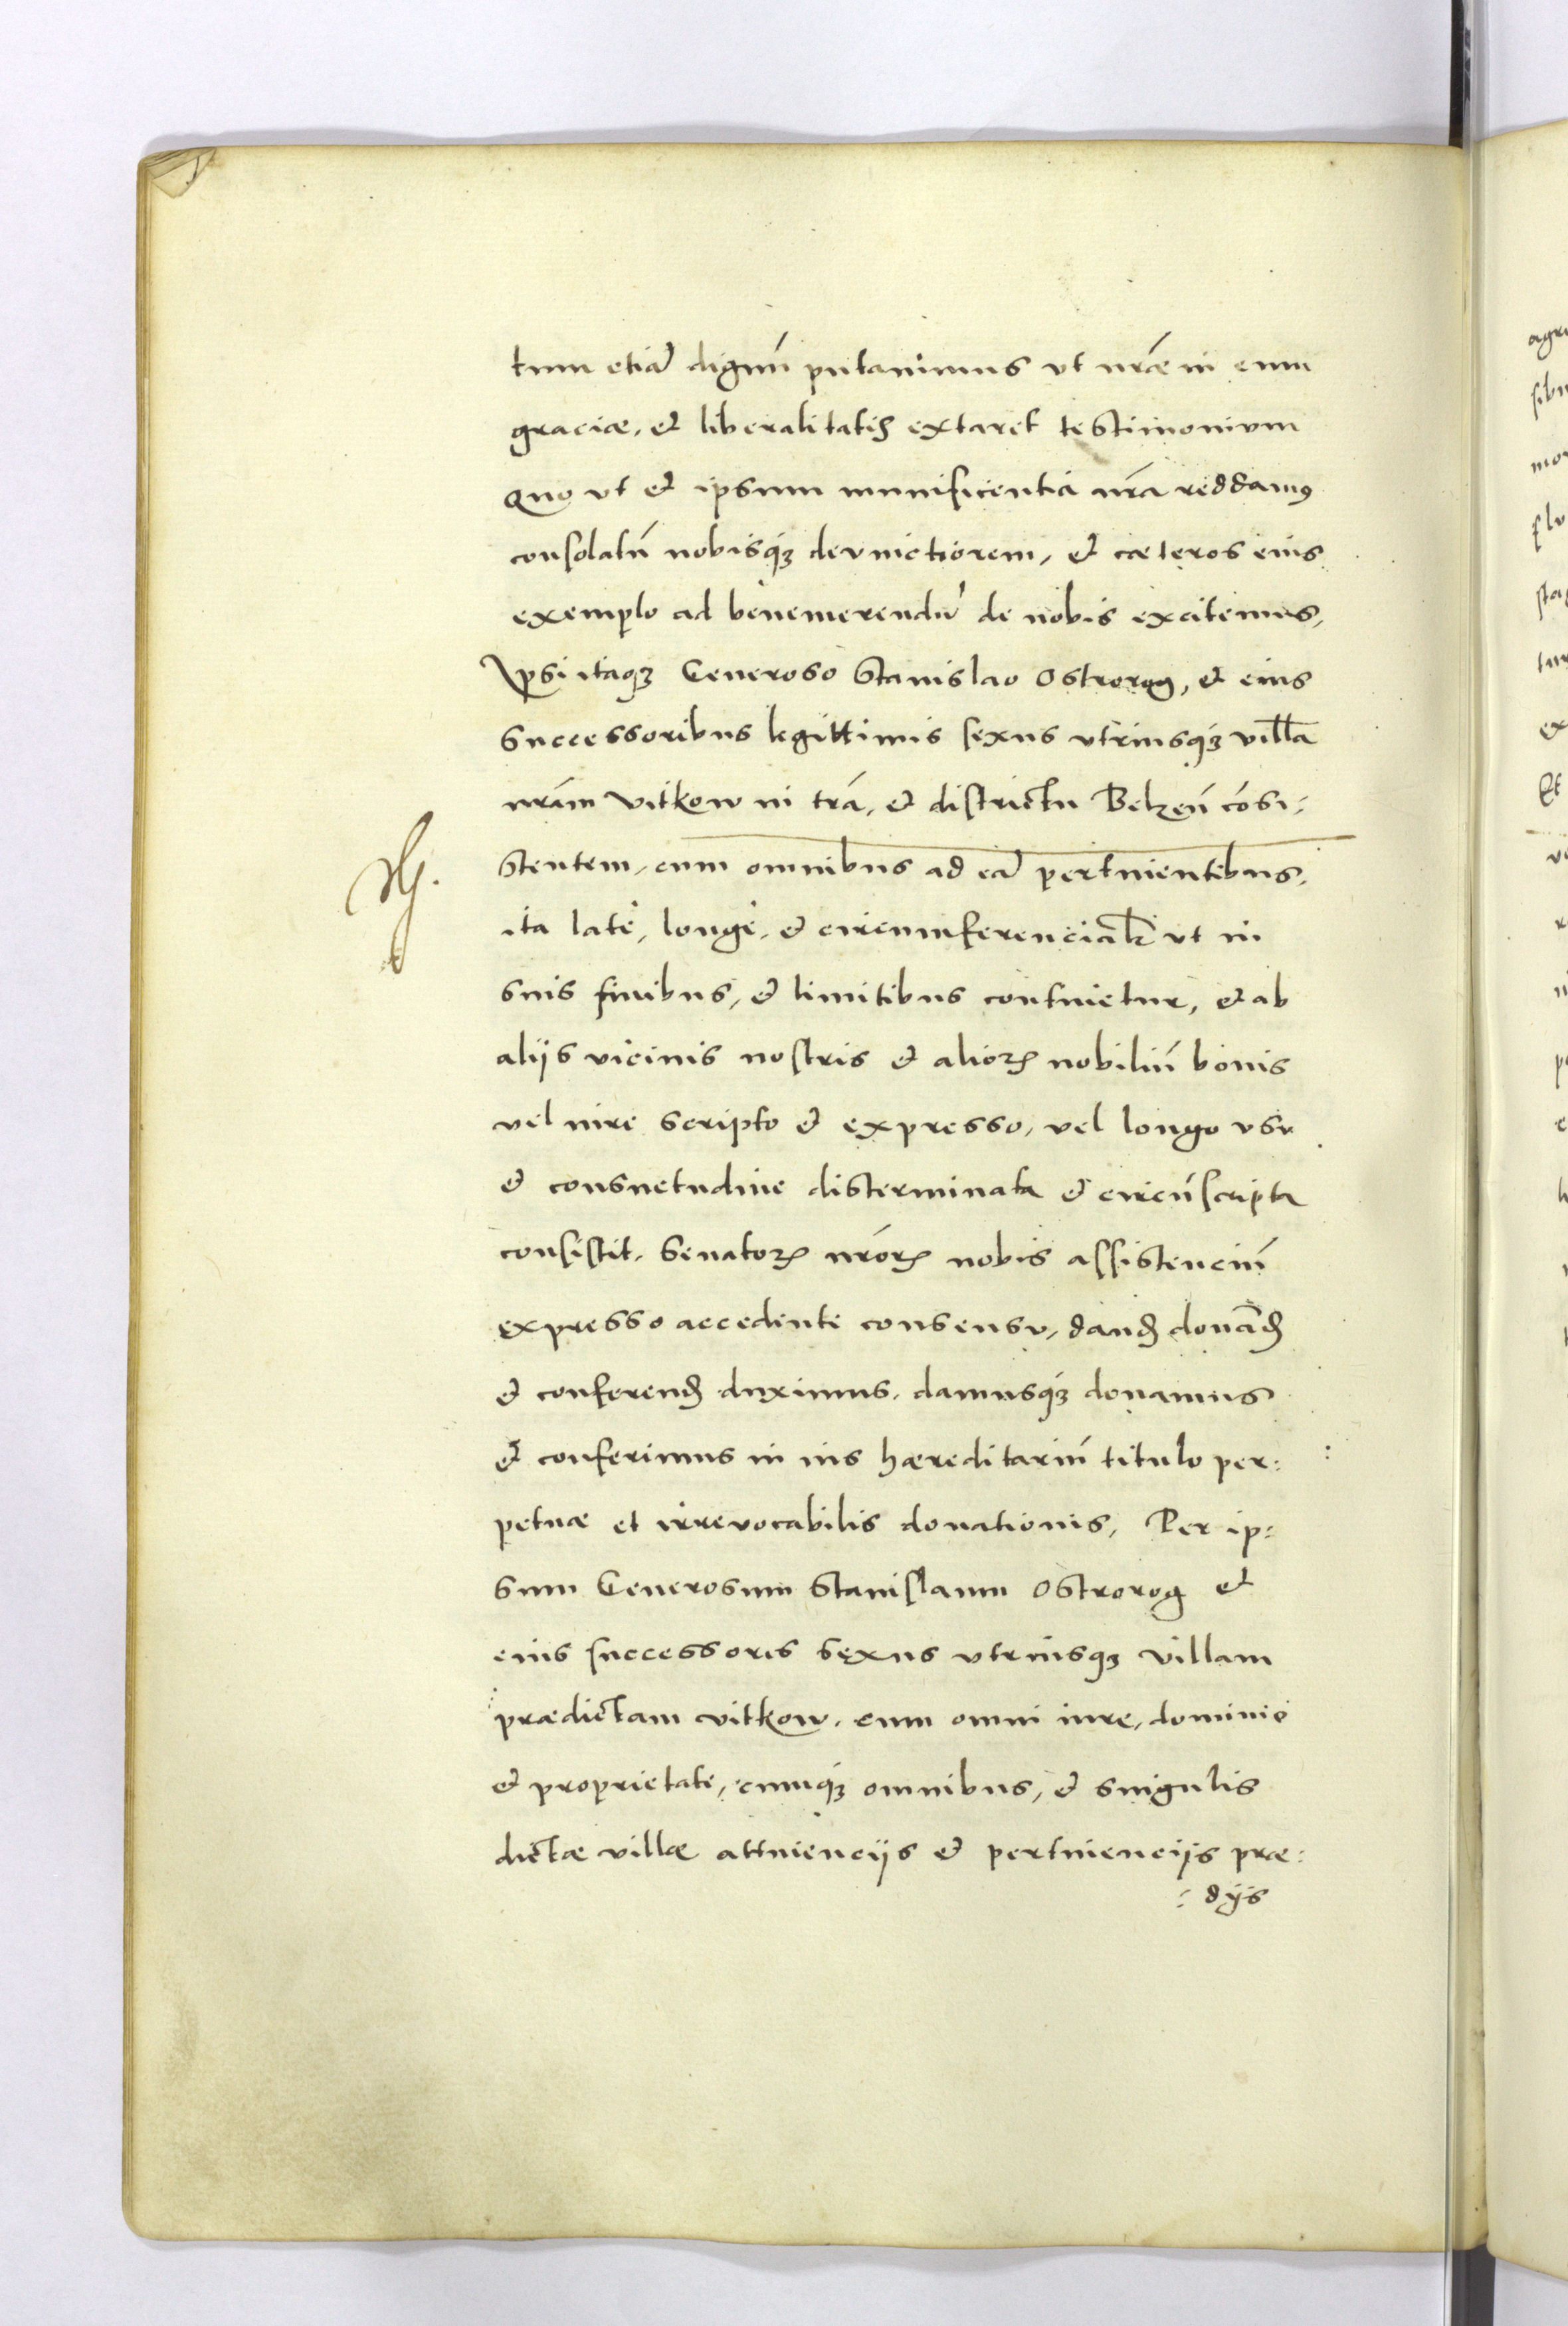 tum etiā dignū putauimus vt nrāe in eum
graciæ, et liberalitatis extaret testimonivm
Quo vt et ipsum munificentia nrā reddamus
consolatū nobisq₃ devinctiorem, et cæteros eius
exemplo ad benemerendū de nobis excitemus,
Ipsi itaq₃ Generoso Stanislao Ostrorog, et eius
Successoribus legittimis sexus vtriusq₃ villā
nrām Vitkow in trā, et districtu Belzeñ cōsi:
stentem, cum omnibus ad eā pertinentibus,
ita late, longe, et circumferencialr̃ vt in
suis finibus, et limitibus continetur, et ab
alijs vicinis nostris et alioꝝ nobiliū bonis
vel iure scripto et expresso, vel longo vsu
et consuetudine disterminata et circūscripta
consistit. Senatoꝝ nrōꝝ nobis assistenciū
expresso accedente consensu, dand̃ donānd̃
et conferend̃ duximus, damusq₃ donamus
et conferimus in ius hæreditariū titulo per:
petuæ et irrevocabilis donationis, Per ip:
sum Generosum Stanislaum Ostrorog et
eius successores sexus vtriusq₃ villam
prædictam Vitkow, cum omni iure, dominio
et proprietate, cumq₃ omnibus, et singulis
dictæ villæ attinencijs et pertinencijs præ:
: dijs